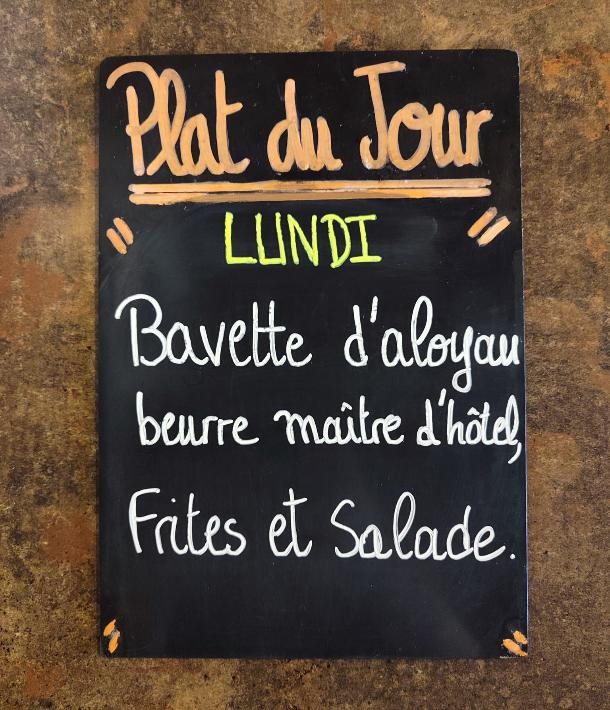 Plat du Jour
LUNDI
Bavette d'aloyau
beurre maître d'hôtel,
Frites et Salade.